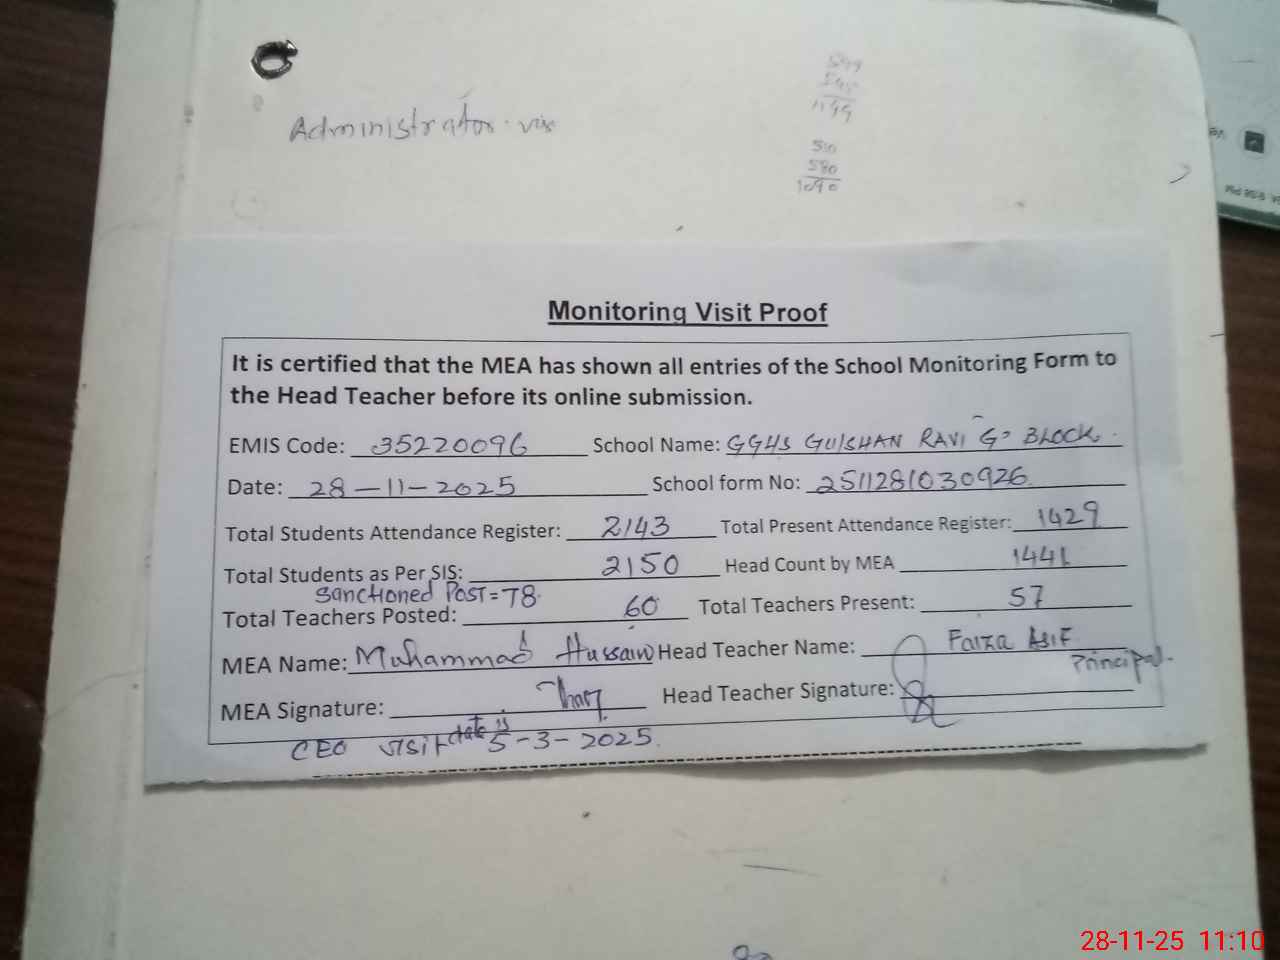 Administrator
510
580
1090
Monitoring Visit Proof
It is certified that the MEA has shown all entries of the School Monitoring Form to
the Head Teacher before its online submission.
EMIS Code: 35220096 School Name: GGHS GUlSHAN RAVI G- BLOCK.
Date: 28-11-2025 School form No: 2511281030926
Total Students Attendance Register: 2143 Total Present Attendance Register: 1429
Total Students as Per SIS: 2150 Head Count by MEA 1441
Sanctioned Post = 78
Total Teachers Posted: 60 Total Teachers Present: 57
MEA Name: Muhammad Hussain Head Teacher Name: Faiza Asif
Principal.
MEA Signature: Head Teacher Signature:
CEO visit date is 5-3-2025.
28-11-25 11:10